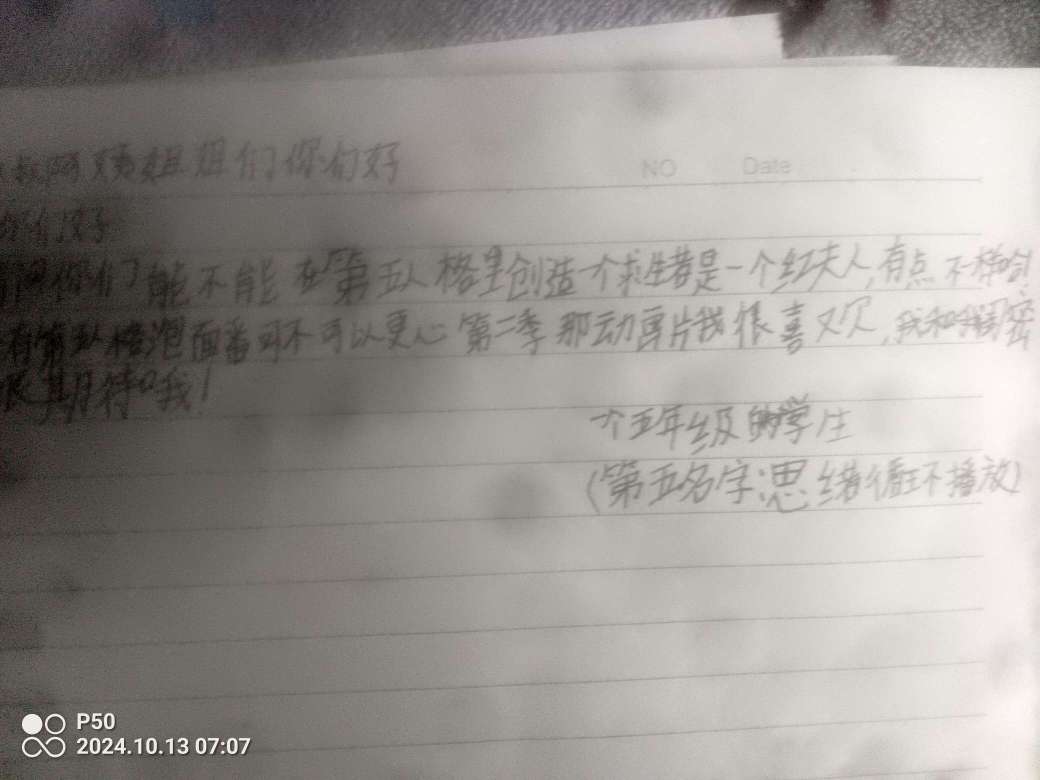 阿姨姐姐们你们好
NO Date
你们能不能在第五人格里创造一个求生者是一个红夫人,有点不一样哈!
有第五人格泡面番可不可以更心第二季那动画片我很喜欢,我和我闺密
很期待哦!
一个五年级的学生
(第五名字:思绪循环播放)
P50
2024.10.13 07:07